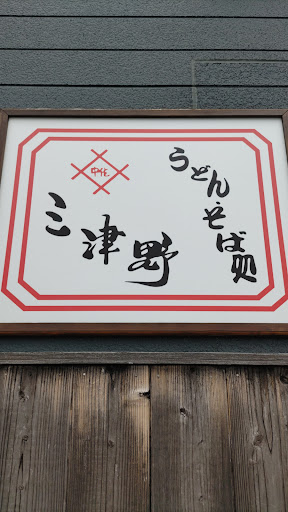 うどん・そば処
三津野